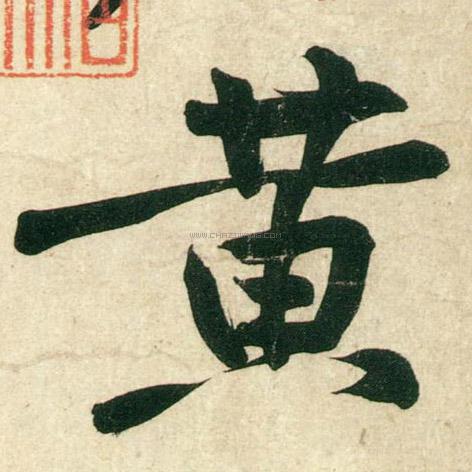 黄
WWW.CHAZIDIAN.COM